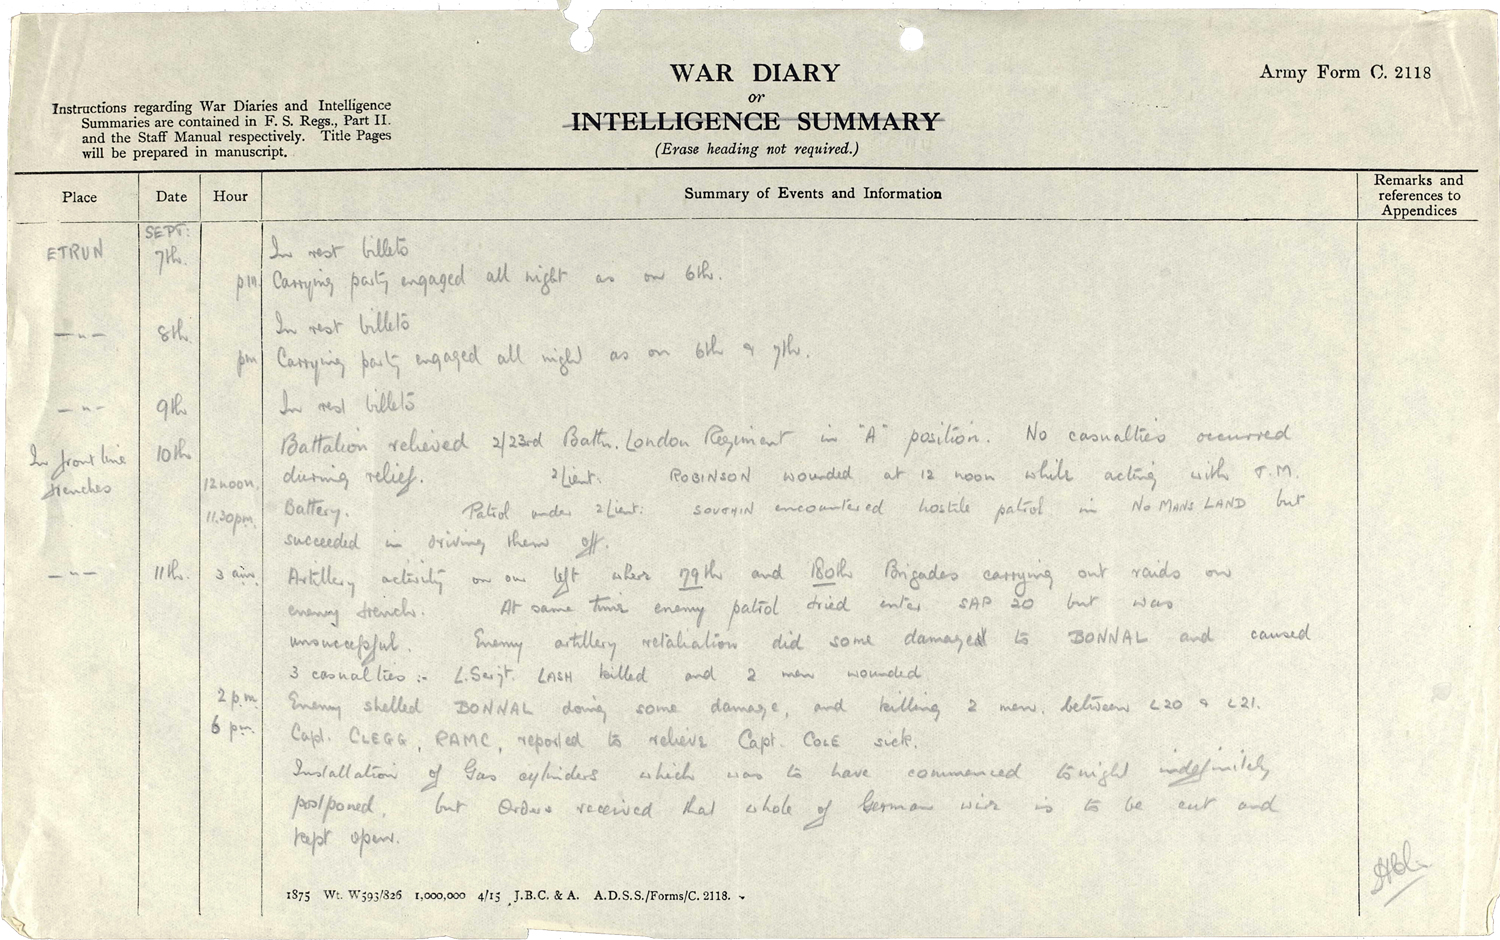 WAR DIARY
or
INTELLIGENCE SUMMARY
(Erase heading not required.)
Army Form C. 2118
Instructions regarding War Diaries and Intelligence
Summaries are contained in F. S. Regs., Part II.
and the Staff Manual respectively. Title Pages
will be prepared in manuscript.
Place Date Hour Summary of Events and Information Remarks and references to Appendices
SEPT:
ETRUN 7th. In rest billets
pm Carrying party engaged all night as on 6th.
—"— 8th. In rest billets
pm Carrying party engaged all night as on 6th & 7th.
—"— 9th In rest billets
In front line trenches 10th Battalion relieved 2/23rd Battn. London Regiment in "A" position. No casualties occurred
12 noon. during relief. 2/Lieut. ROBINSON wounded at 12 noon while acting with T.M.
11.30pm. Battery. Patrol under 2/Lieut: encountered hostile patrol in NO MANS LAND but
succeeded in driving them off.
—"— 11th. 3 am. Artillery activity on our left where 179th and 180th Brigades carrying out raids on
enemy trench. At same time enemy patrol tried enter SAP 20 but was
unsuccessful. Enemy artillery retaliation did some damage to BONNAL and caused
3 casualties :- L.Serjt. LASH killed and 2 men wounded
2 p.m. Enemy shelled BONNAL doing some damage, and killing 2 men. between L20 & L21.
6 pm. Capt. CLEGG, RAMC, reported to relieve Capt. COLE sick.
Installation of Gas cylinders which was to have commenced tonight indefinitely
postponed, but Orders received that whole of German wire is to be cut and
kept open.
1875 Wt. W593/826 1,000,000 4/15 J.B.C. & A. A.D.S.S./Forms/C. 2118.